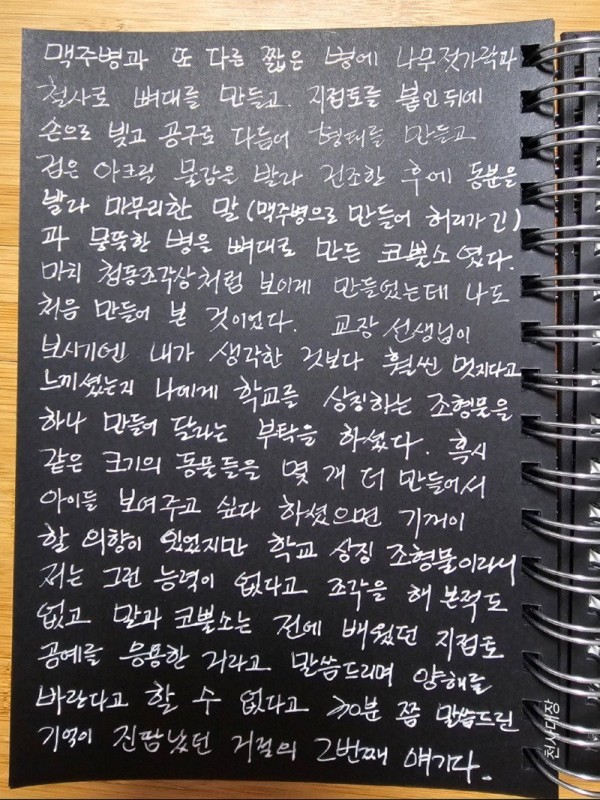 맥주병과 또 다른 짧은 병에 나무젓가락과
철사로 뼈대를 만들고. 지점토를 붙인 뒤에
손으로 빚고 공구로 다듬어 형태를 만들고
검은 아크릴 물감을 발라 건조한 후에 동분을
발라 마무리한 말 (맥주병으로 만들어 허리가 긴)
과 뭉뚝한 병을 뼈대로 만든 코뿔소였다.
마치 청동조각상처럼 보이게 만들었는데 나도
처음 만들어 본 것이었다. 교장 선생님이
보시기엔 내가 생각한 것보다 훨씬 멋지다고
느끼셨는지 나에게 학교를 상징하는 조형물을
하나 만들어 달라는 부탁을 하셨다. 혹시
같은 크기의 동물들을 몇 개 더 만들어서
아이들 보여주고 싶다 하셨으면 기꺼이
할 의향이 있었지만 학교 상징 조형물이라니
저는 그런 능력이 없다고 조각을 해 본적도
없고 말과 코뿔소는 전에 배웠던 지점토
공예를 응용한 거라고 말씀드리며 양해를
바란다고 할 수 없다고 30분 쯤 말씀드린
기억이 진땀났던 거절의 2번째 얘기다.
천사대장